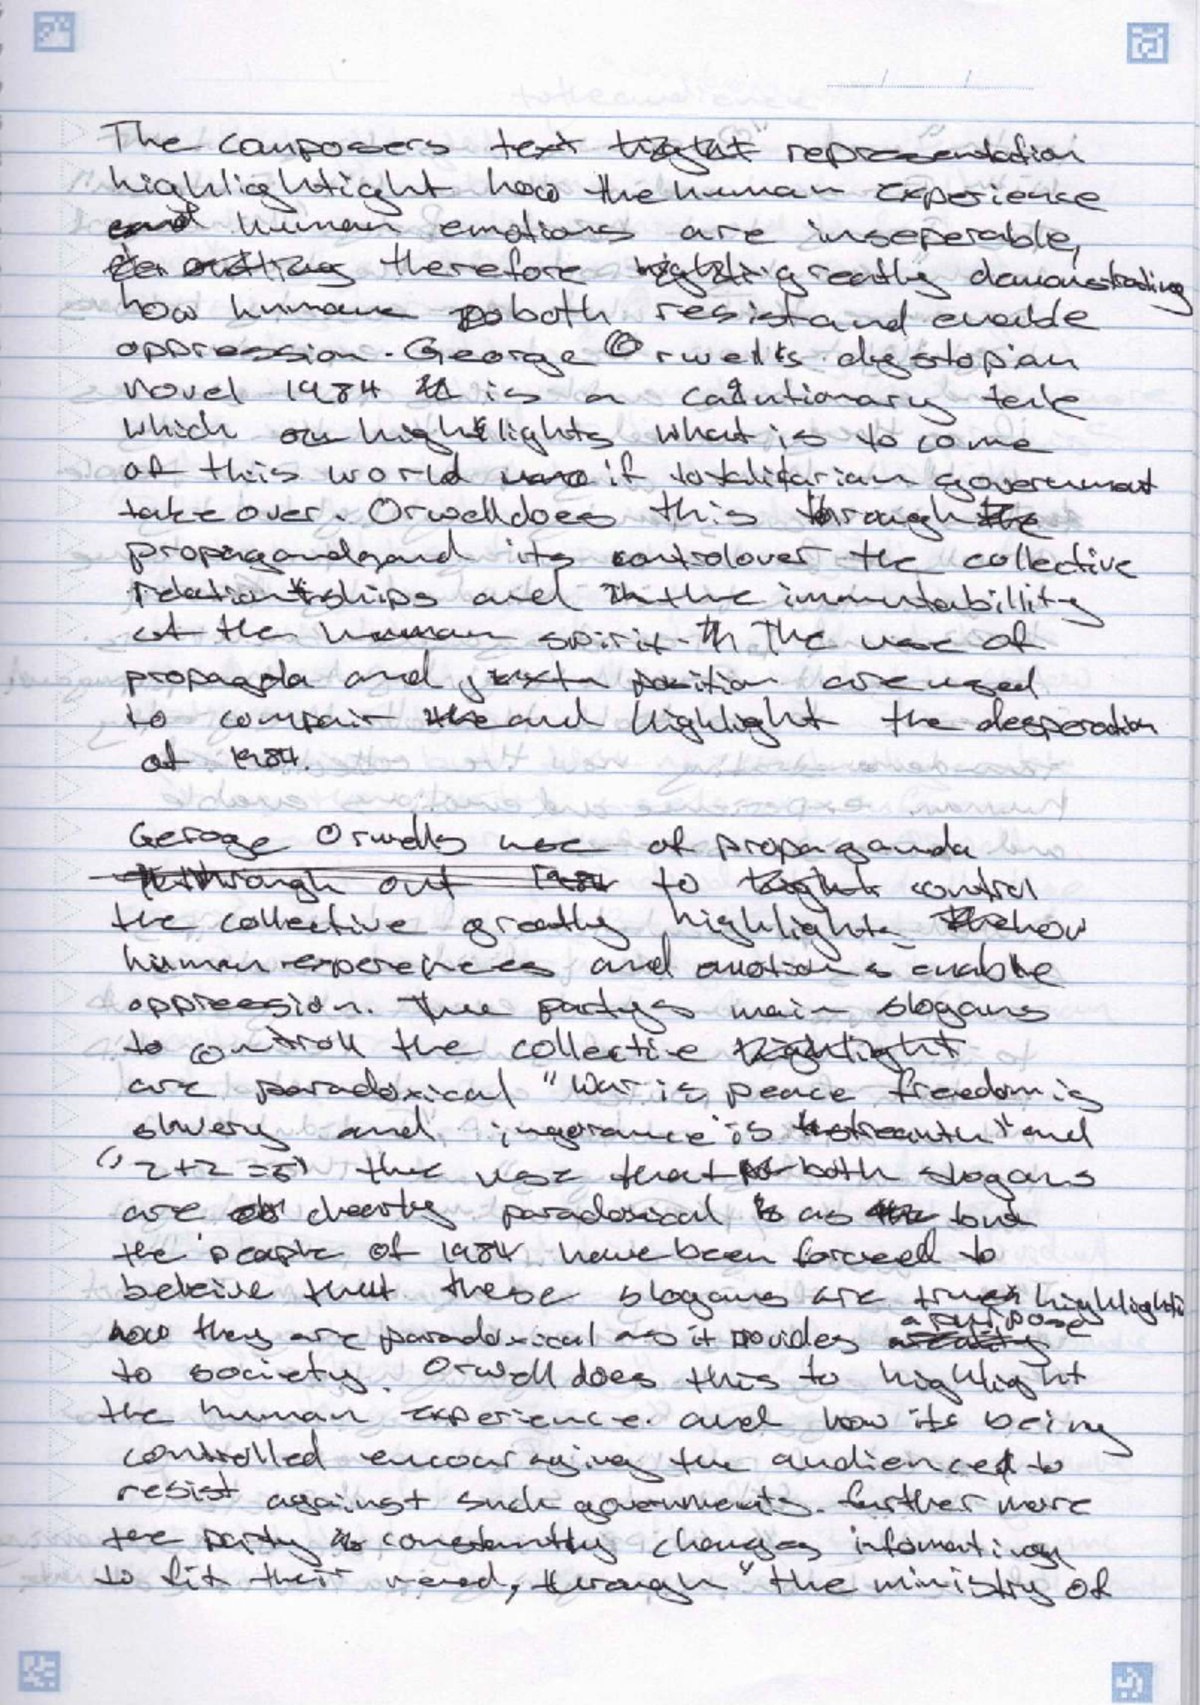 The composers text representation
highlightight how the human experience
and human emotions are inseperable,
therefore greatly demonstrating
how humans both resist and enable
oppression. George Orwell's dystopian
novel 1984 is a cautionary tale
which highlights what is to come
of this world if totalitarian government
take over. Orwell does this through
propaganda and its control over the collective
relationships and the immutabillity
of the human spirit. The use of
propagda and juxta position are used
to compair and highlight the desperation
of 1984.
Geroge Orwells use of propaganda
to control
the collective greatly highlights how
human experences and emotions enable
oppression. The partys main slogans
to controll the collective
are paradoxical "War is peace freedom is
slavery and ingorance is streanth" and
"2+2=5" the use that both slogans
are clearly paradoxical as but
the people of 1984 have been forced to
beleive that these slogans are true highlight
how they are paradoxical as it provides a purpose
to society. Orwell does this to highlight
the human experience. and how its being
controlled encouraging the audience to
resist against such governments. further more
the party constantly changes infomation
to fit their need, through "the ministry of